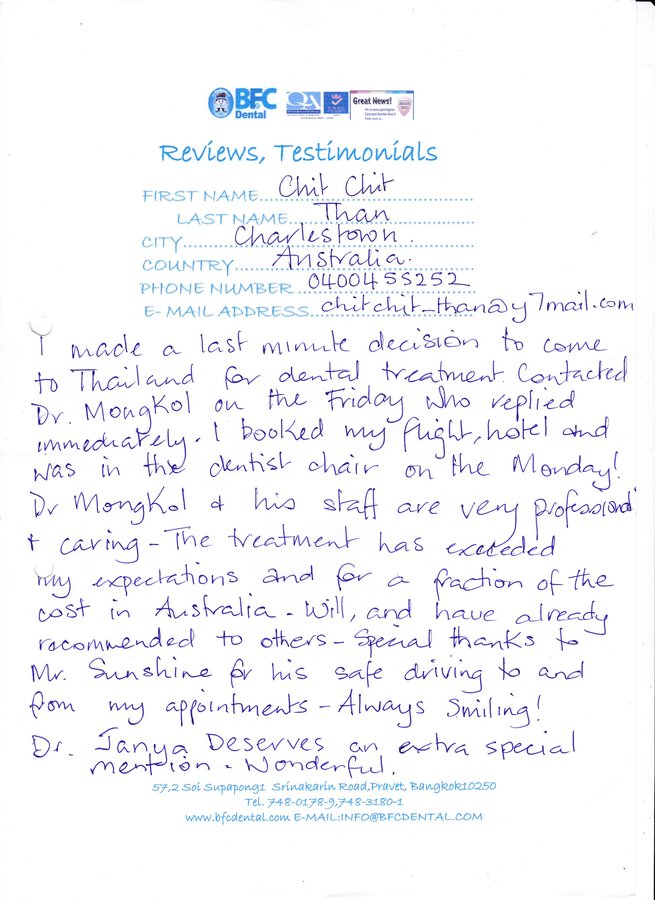 BFC
Dental
QA
Great News!
Reviews, Testimonials
FIRST NAME... Chit Chit
LAST NAME... Than
CITY... Charlestown.
COUNTRY... Australia.
PHONE NUMBER... 0400455252
E-MAIL ADDRESS... chitchit_than@y7mail.com
I made a last minute decision to come
to Thailand for dental treatment. Contacted
Dr. Mongkol on the Friday who replied
immediately. I booked my flight, hotel and
was in the dentist chair on the Monday!
Dr Mongkol & his staff are very professional
+ caring - The treatment has exceeded
my expectations and for a fraction of the
cost in Australia - Will, and have already
recommended to others - Special thanks to
Mr. Sunshine for his safe driving to and
from my appointments - Always Smiling!
Dr. Janya Deserves an extra special
mention. Wonderful.
57,2 Soi Supapong1 Srinakarin Road,Pravet, Bangkok10250
Tel. 748-0178-9,748-3180-1
www.bfcdental.com E-MAIL:INFO@BFCDENTAL.COM